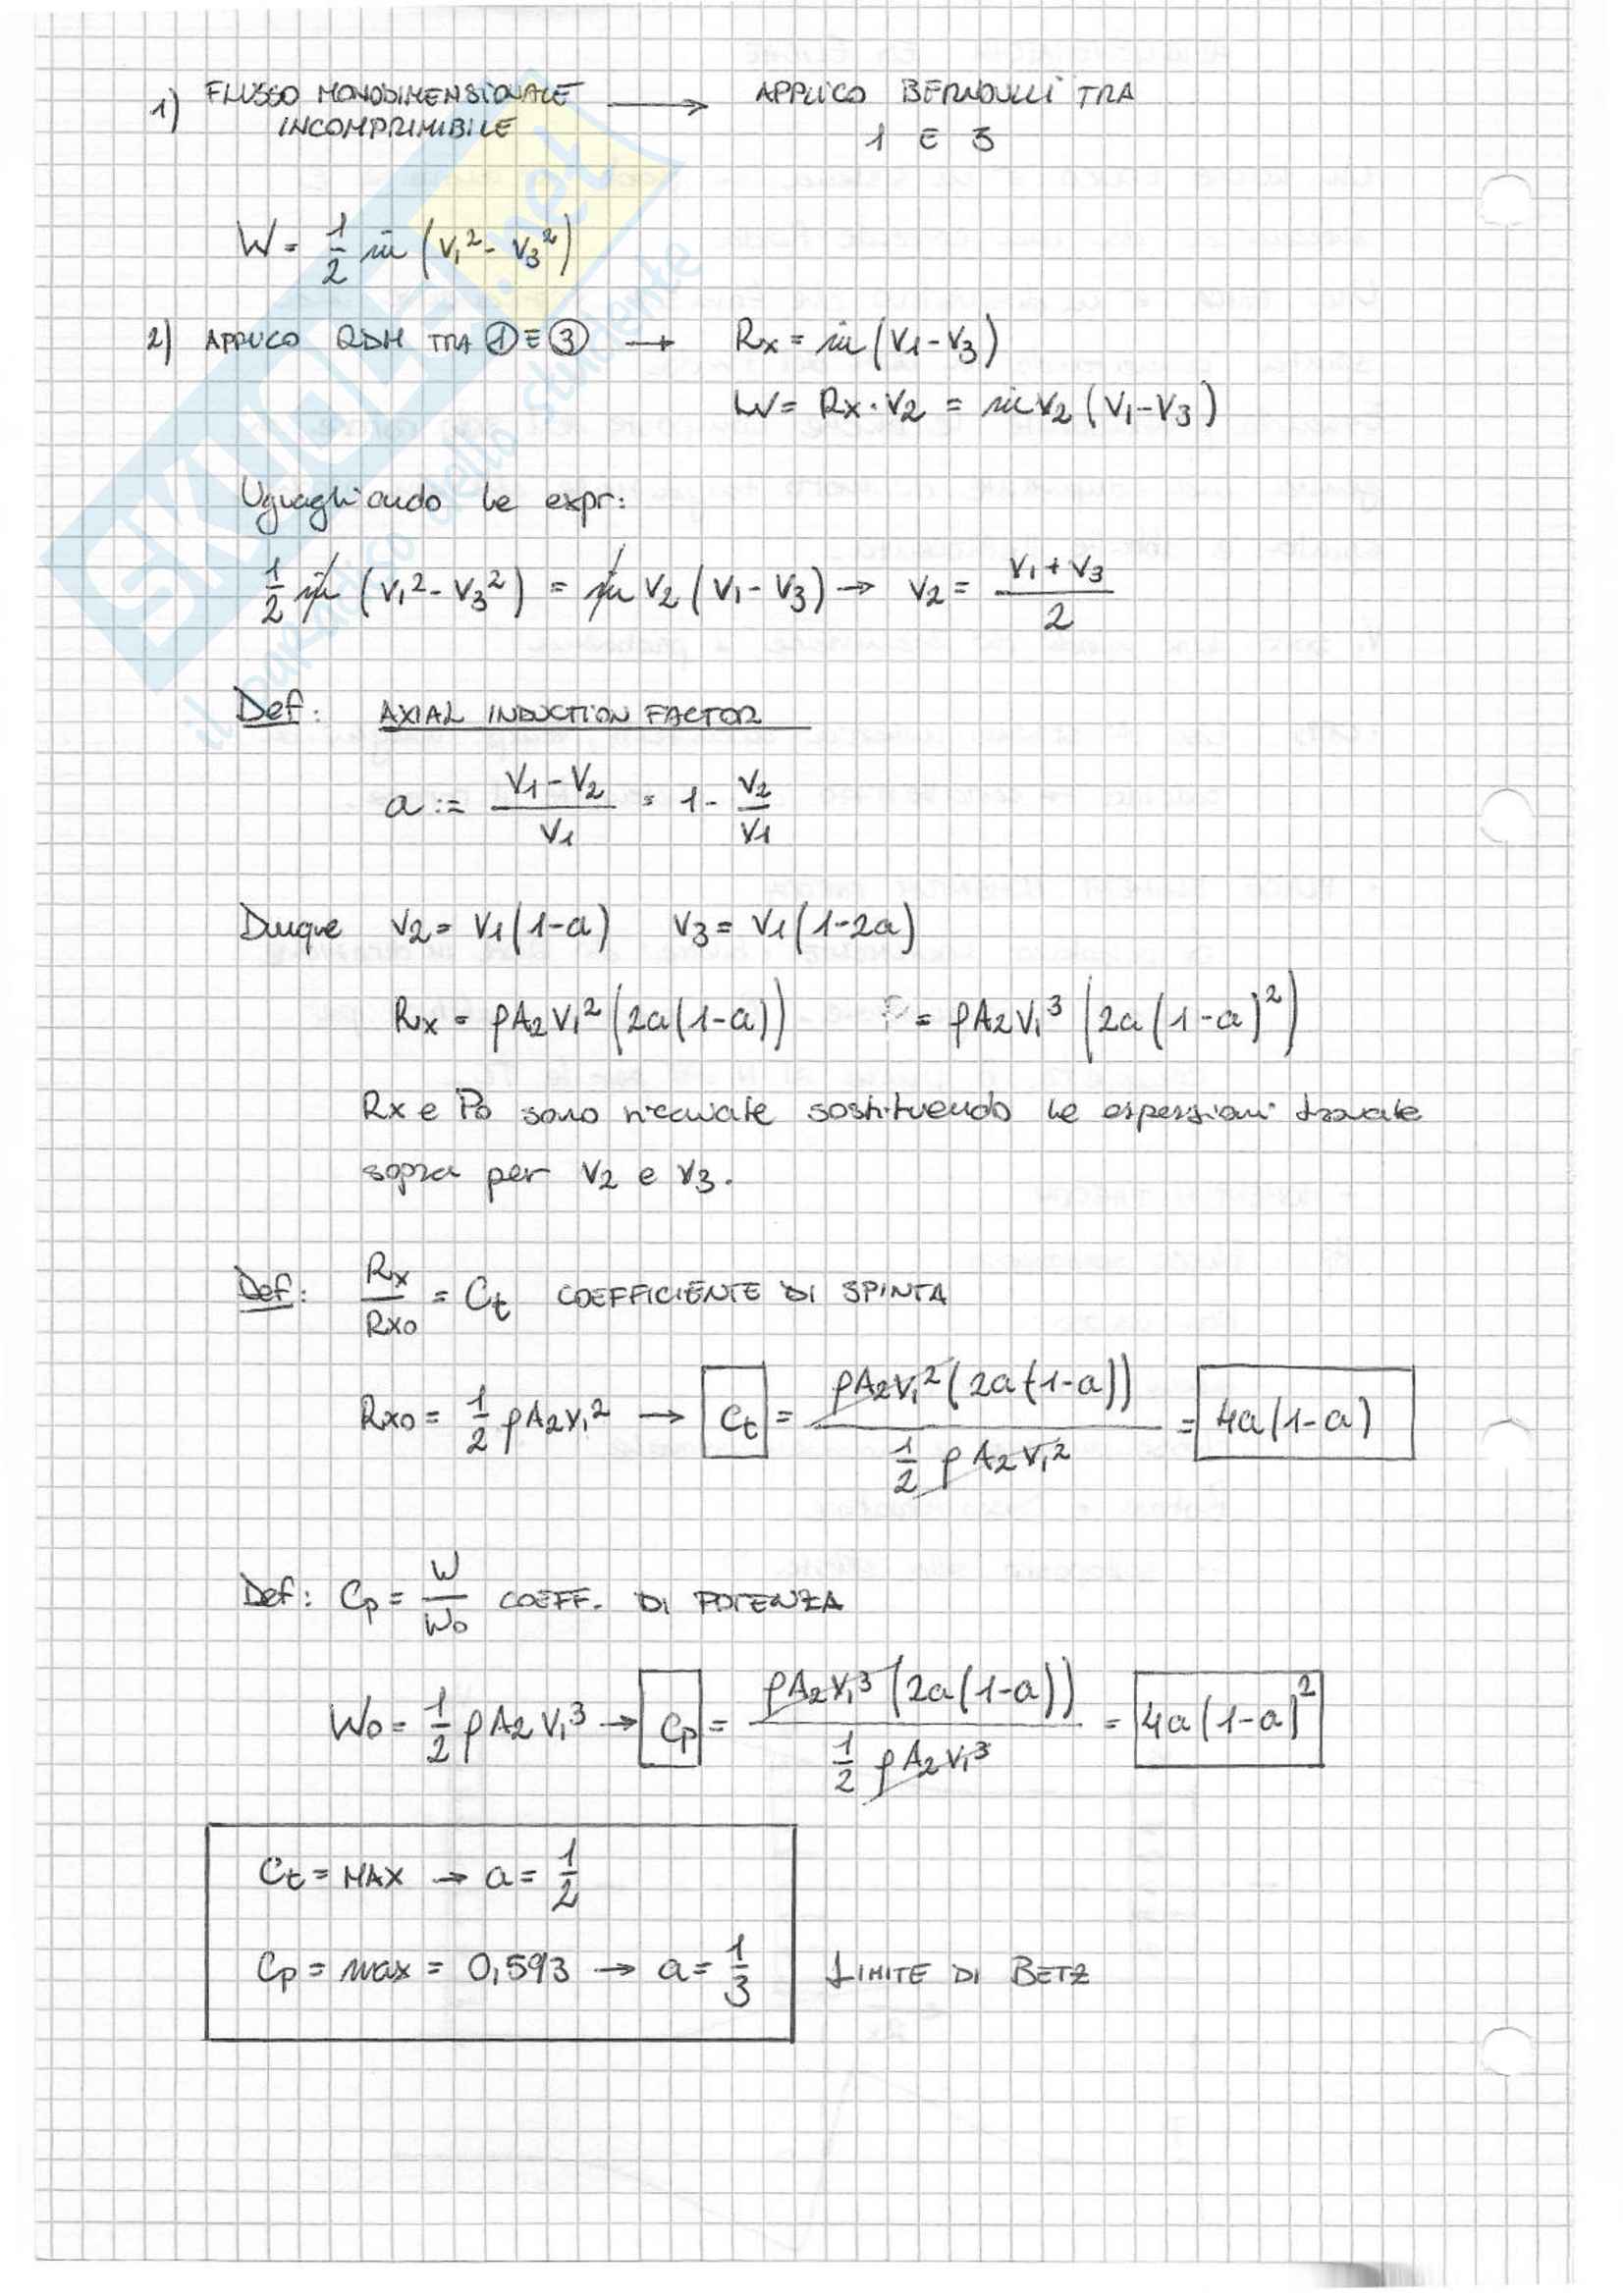 1) FLUSSO MONODIMENSIONALE INCOMPRIMIBILE → APPLICO BERNOULLI TRA 1 E 3
W = 1/2 ṁ (V₁² - V₃²)
2) APPLICO QDM TRA ① E ③ → Rx = ṁ (V₁ - V₃)
W = Rx · V₂ = ṁ V₂ (V₁ - V₃)
Uguagliando le expr:
1/2 ṁ (V₁² - V₃²) = ṁ V₂ (V₁ - V₃) → V₂ = (V₁ + V₃)/2
Def: AXIAL INDUCTION FACTOR
a := (V₁ - V₂)/V₁ = 1 - V₂/V₁
Dunque V₂ = V₁(1-a) V₃ = V₁(1-2a)
Rx = ρA₂V₁² (2a(1-a)) P = ρA₂V₁³ (2a(1-a)²)
Rx e Po sono ricavate sostituendo le espressioni trovate
sopra per V₂ e V₃.
Def: Rx/Rxo = Ct COEFFICIENTE DI SPINTA
Rxo = 1/2 ρA₂V₁² → Ct = ρA₂V₁²(2a(1-a)) / 1/2 ρA₂V₁² = 4a(1-a)
Def: Cp = W/Wo COEFF. DI POTENZA
Wo = 1/2 ρA₂V₁³ → Cp = ρA₂V₁³(2a(1-a)) / 1/2 ρA₂V₁³ = 4a(1-a)²
Ct = MAX → a = 1/2
Cp = max = 0,593 → a = 1/3 LIMITE DI BETZ
SKUOLA.net
il paradiso dello studente